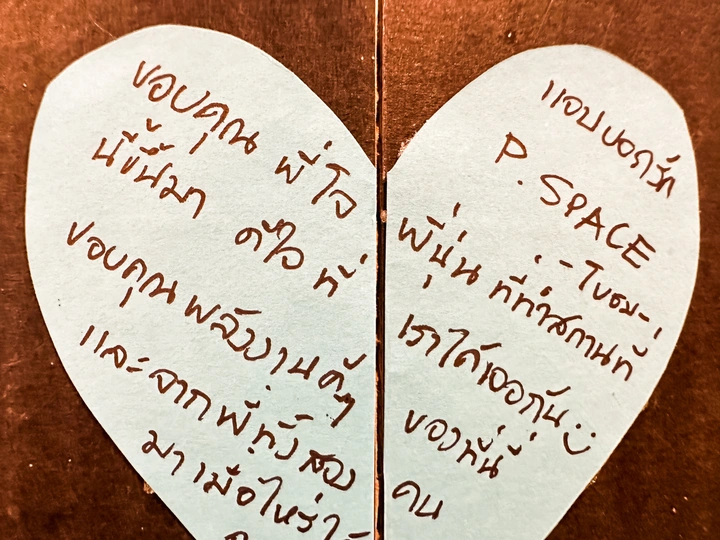 แอบบอกรัก
P. SPACE
ขอบคุณ พี่โจ พี่นุ่น ที่ทำสถานที่
นี้ขึ้นมา ดีใจ ที่ เราได้เจอกัน
ขอบคุณพลังงานดีๆ ของที่นี่
และจากพี่ทั้งสอง คน
มาเมื่อไหร่ก็